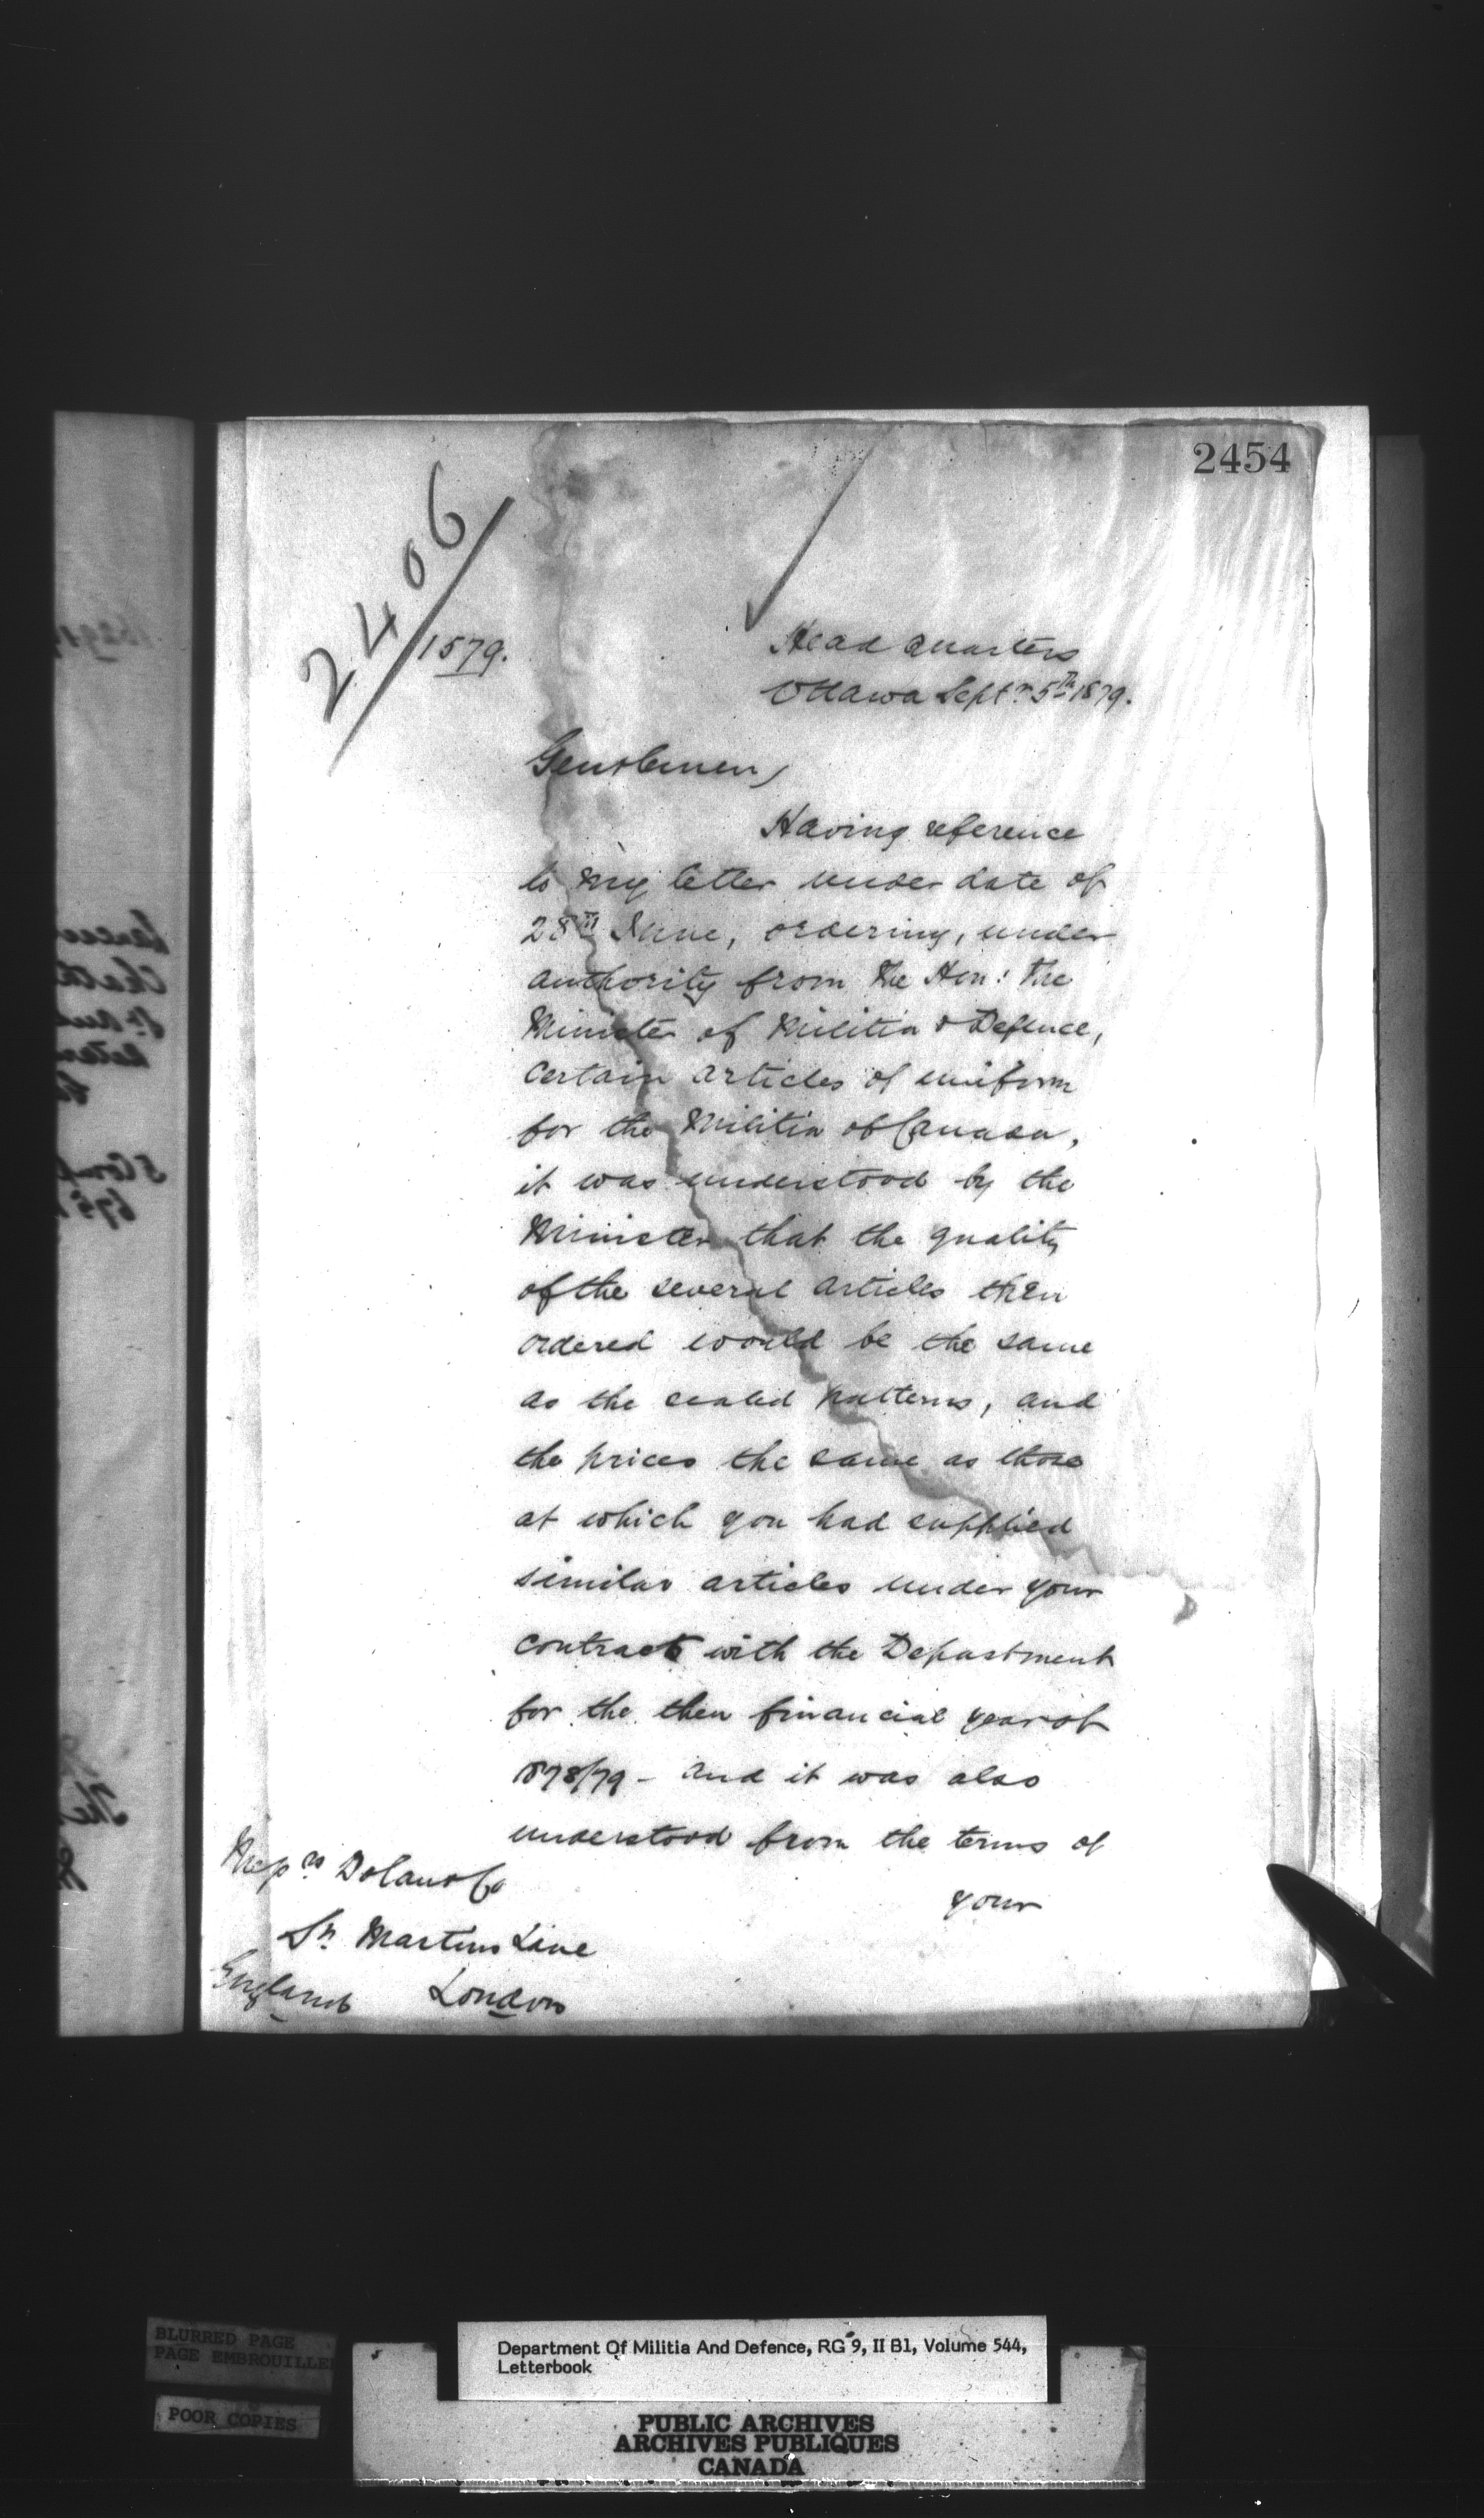 2454
2406
1579.
Head Quarters
Ottawa Septr. 5th 1879.
Gentlemen,
Having reference
to my letter under date of
28th June, ordering, under
authority from the Hon: the
Minister of Militia & Defence,
certain articles of uniform
for the Militia of Canada,
it was understood by the
Minister that the quality
of the several articles then
ordered would be the same
as the sealed patterns, and
the prices the same as those
at which you had supplied
similar articles under your
contract with the Department
for the then financial year of
1878/79 - and it was also
understood from the terms of
your
Messrs Dolan & Co
St. Martins Lane
London
England
BLURRED PAGE
PAGE EMBROUILLE
POOR COPIES
Department Of Militia And Defence, RG 9, II B1, Volume 544,
Letterbook
PUBLIC ARCHIVES
ARCHIVES PUBLIQUES
CANADA